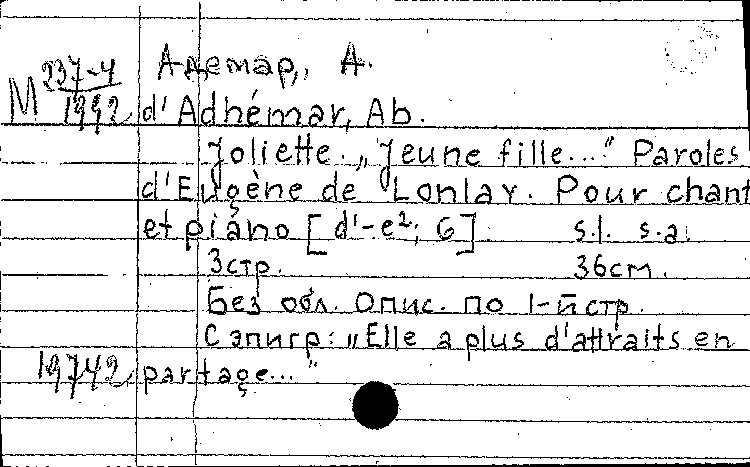 Адемар, А.
М 237-4/1992
d'Adhémar, Ab.
Joliette. „Jeune fille...” Paroles
d'Eugène de Lonlay. Pour chant
et piano [d¹-e²; G] s.l. s.a.
3 стр. 36 см.
Без обл. Опис. по 1-й стр.
С эпигр: „Elle a plus d'attraits en
19742 partage...”